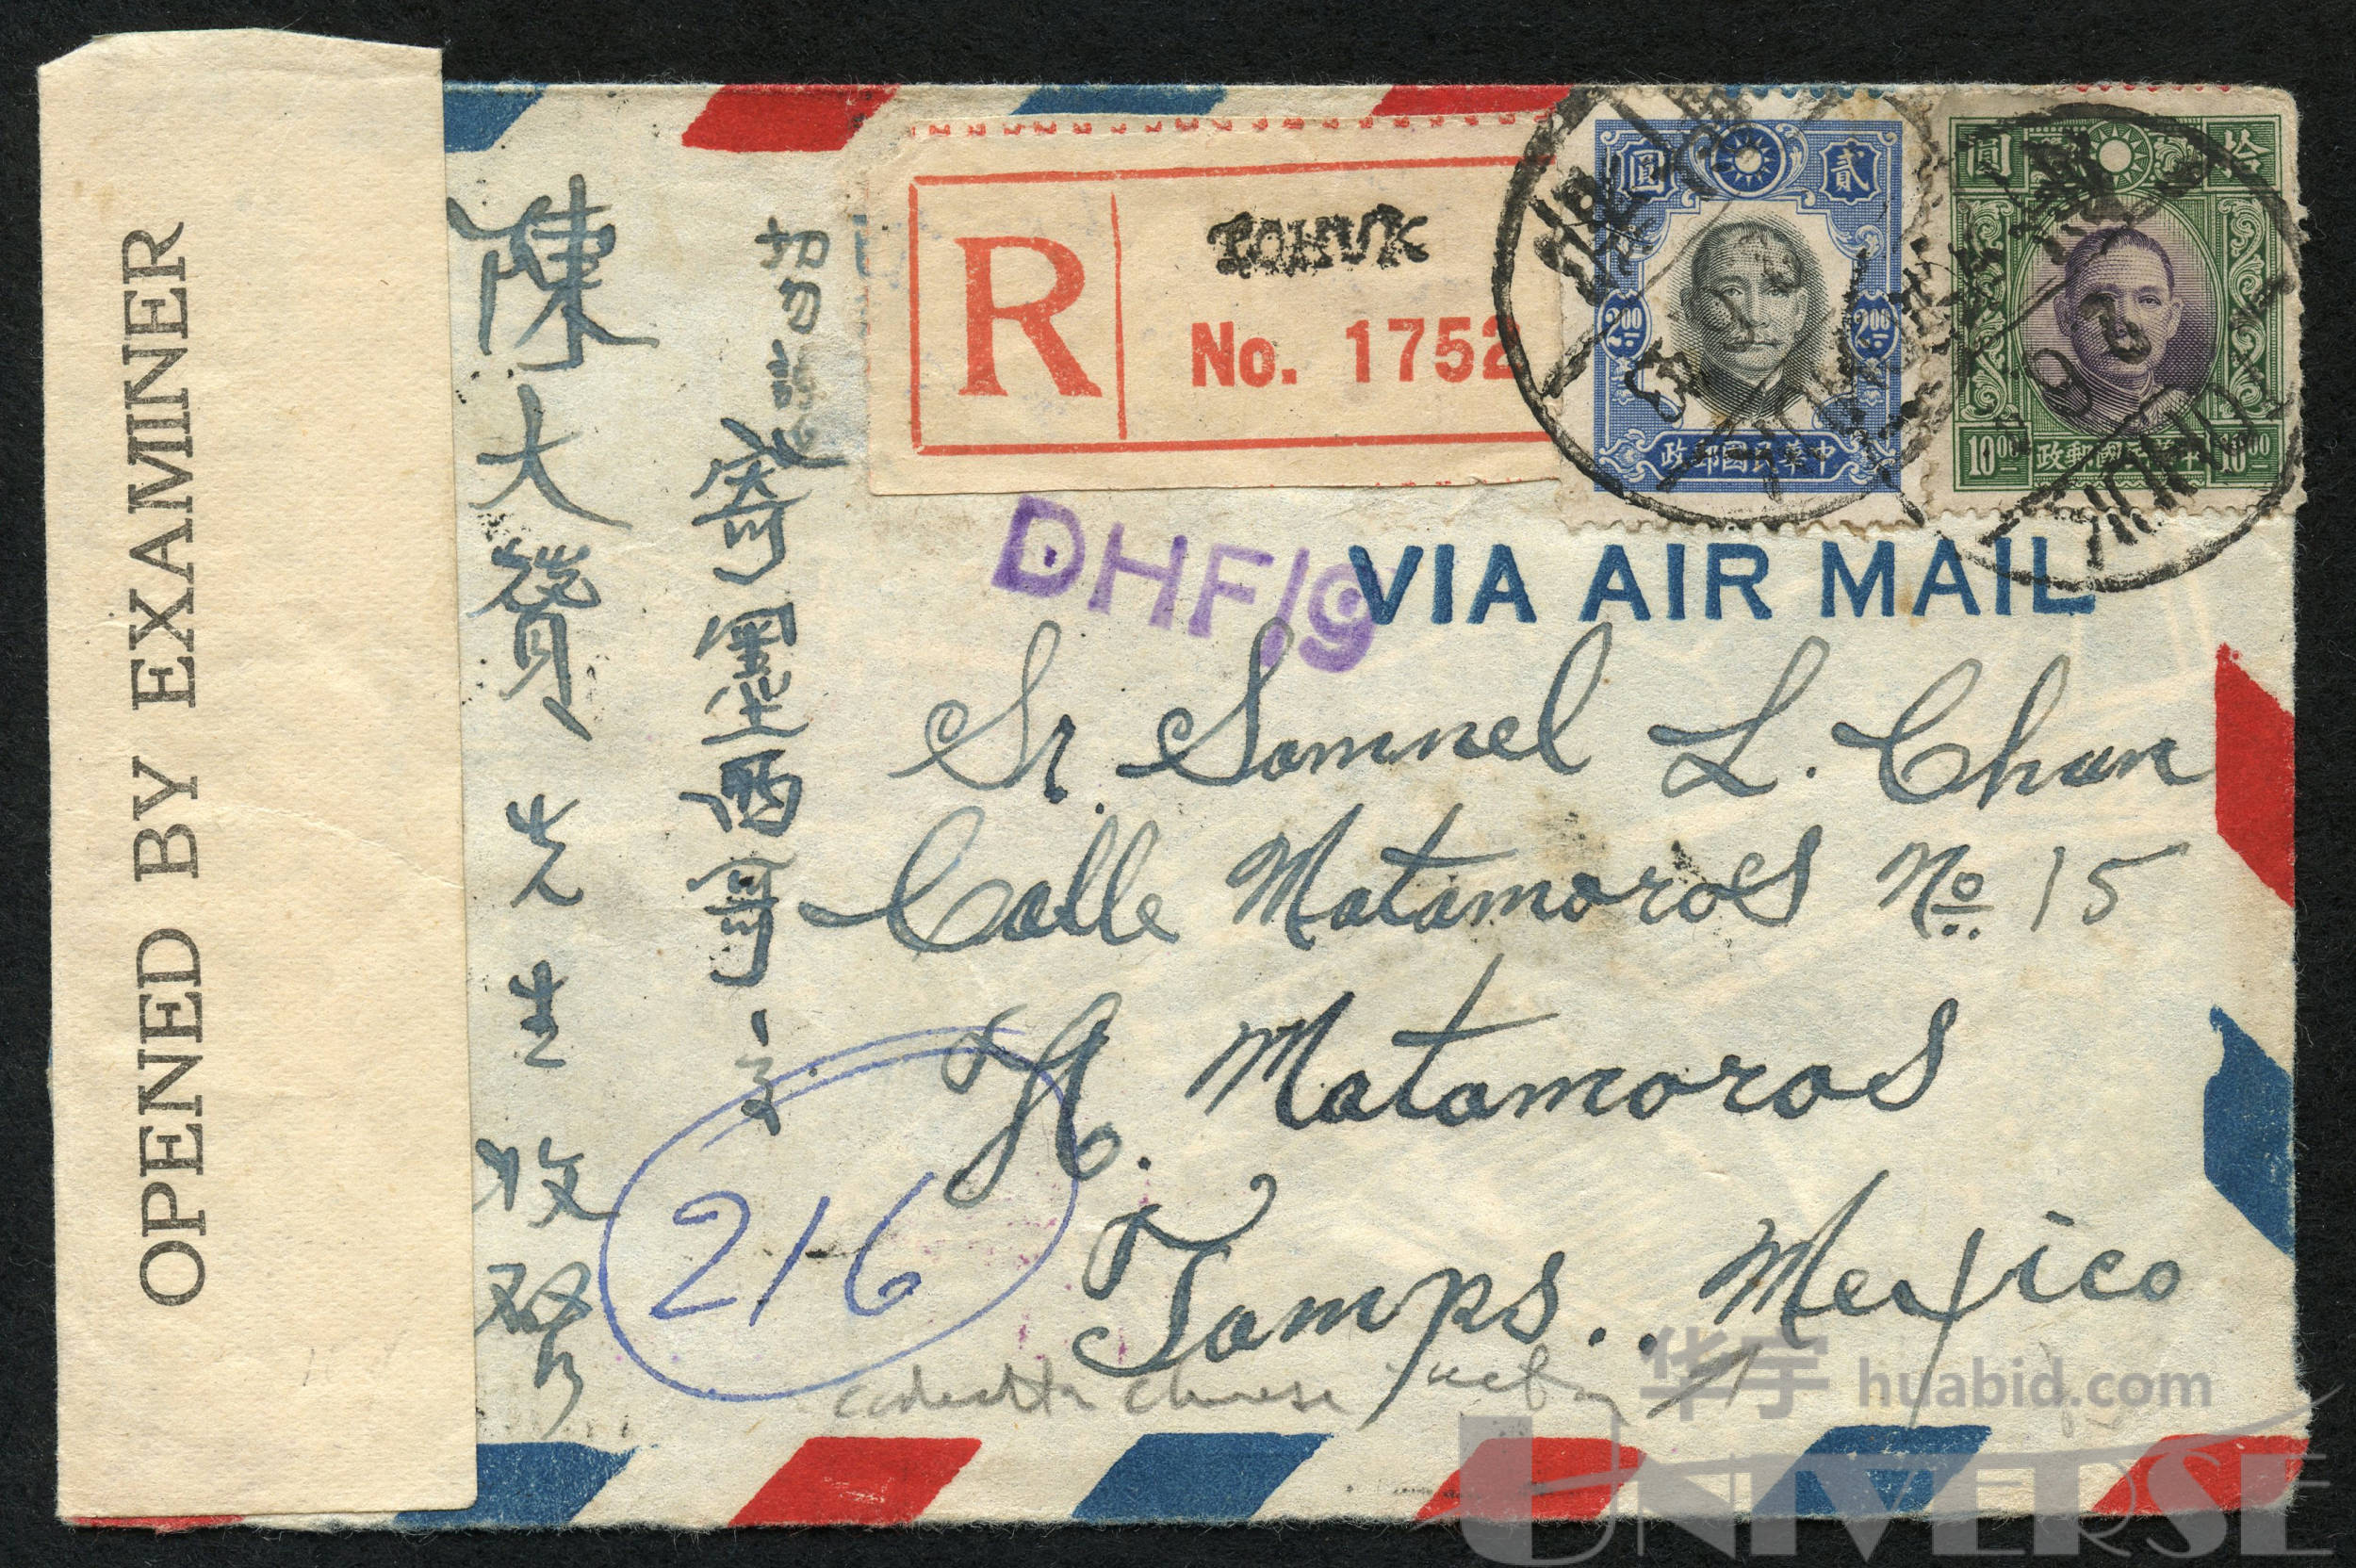 OPENED BY EXAMINER
R
No. 1752
圓 貳
2.00 2.00
政郵國民華中
圓 拾
10.00 10.00
政郵國民華中
DHF/9
VIA AIR MAIL
陳大贊先生收啓
寄墨西哥
Sr. Samuel L. Chan
Calle Matamoros No. 15
H. Matamoros
Tamps.. Mexico
216
华宇 huabid.com
UNIVERSE